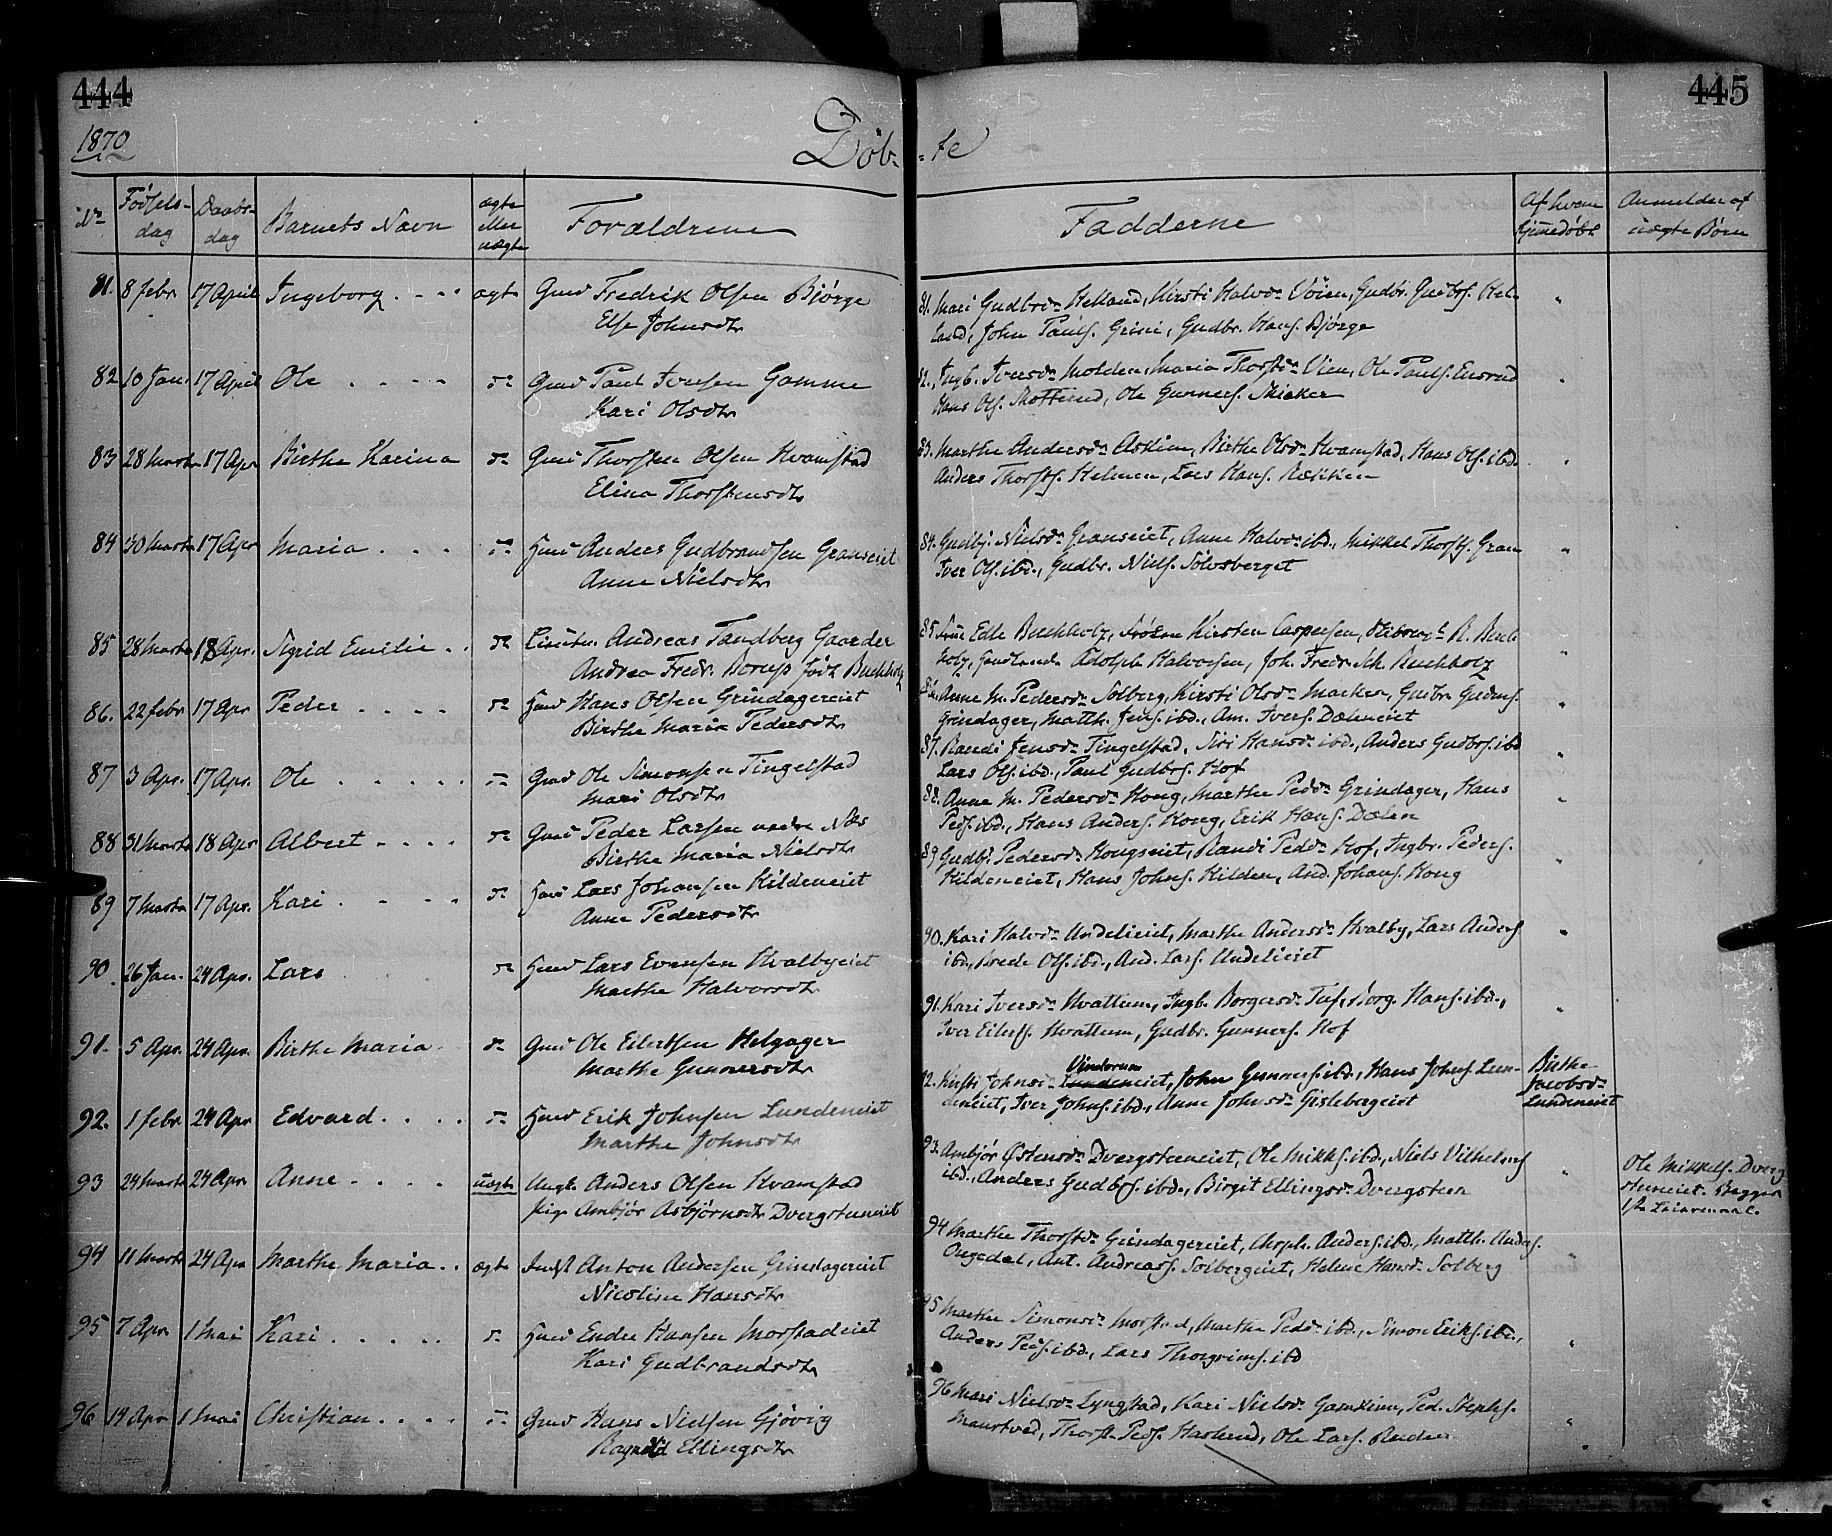 444
445
1870
Døb-
-te
No
Fødsels-
dag
Daabs-
dag
Barnets Navn
ægte
eller
uægte
Forældrene
Fadderne
Af hvem
hjemmedøbt
Anmelder af
uægte Børn
81. 8 febr 17 April Ingeborg . - - . ægte Gmd Fredrik Olsen Bjørge
Else Johnsdtr
82 10 Jan. 17 April Ole . . - - do Gmd Paul Iversen Gamme
Kari Olsdtr
83 28 Marts 17 Apr Birthe Karina do Gmd Thorsten Olsen Kvamstad
Elina Thorstensdtr
84 30 Marts 17 Apr Maria . . . do Hmd Anders Gudbrandsen Granseiet
Anne Nielsdtr
85 28 Marts 18 Apr. Sigrid Emilie . . do Lieutn. Andreas Tandberg Gaarder
Andrea Fredr. Borup født Buchholz
86. 22 febr 17 Apr Peder . . . . do Hmd Hans Olsen Grindagereiet
Birthe Maria Pedersdtr
87 3 Apr. 17 Apr. Ole . . . . . do Gmd Ole Simonsen Tingelstad
Mari Olsdtr
88 31 Marts 18 Apr Albert . . . . do Gmd Peder Larsen nedre Næs
Birthe Maria Nielsdtr
89 7 Marts 17 Apr. Kari . . . . do Hmd Lars Johansen Kildeneiet
Anne Pedersdtr
90. 26 Jan. 24 Apr. Lars do Hmd Lars Evensen Hvalbyeiet
Marthe Halvorsdtr
91. 5 Apr. 24 Apr. Birthe Maria do Gmd Ole Eilertsen Helgager
Marthe Gunnersdtr
92. 1 febr 24 Apr Edvard . . . . do Hmd Erik Johnsen Lundeneiet
Marthe Johnsdtr
93 24 Marts 24 Apr. Anne . . . . uægte Ungk. Anders Olsen Kvamstad
Pige Ambjør Asbjørnsdtr Dvergsteneiet
94 11 Marts 24 Apr Marthe Maria . . ægte Indst Anton Andersen Grindagereiet
Nicoline Hansdtr
95 7 Apr 1 Mai Kari . . . . . do Hmd Endre Hansen Morstadeiet
Kari Gudbrandsdtr
96 14 Apr 1 Mai Christian . . . . do Gmd Hans Nielsen Gjøvig
Ragnild Ellingsdtr
81. Mari Gudbrsdr Helland, Kirsti Halvdr Vøien, Gudbr. Gudbrs. Hel-
land, John Pauls. Grini, Gudbr. Hans. Bjørge
82. Ingb. Iversdr Molden, Maria Thorstdr Vien, Ole Pauls. Ensrud
Hans Ols. Ole Gunners. Skiaker
83. Marthe Andersdr Askim, Birthe Olsdr Kvamstad, Hans Ols. ibd.
Anders Thorsts. Helmen, Lars Hans. Rækken
84. Gudbj. Nielsdr Granseiet, Anne Halvdr ibd., Mikkel Thorsts. Gran
Iver Ols. ibd., Gudbr. Niels. Sølvsberget
85 Frue Edle Buchholz, Frøken Kirsten Caspersen, R. Buch-
holz, Adolph Halvorsen, Joh. Fredr. Sch. Buchholz
86. Anne M. Pedersdr Solberg, Kirsti Olsdr Gudbr. Gudbrs.
Grindager, Matth. Jens. ibd., Am. Ivers. Dæleneiet
87. Randi Jensdr Tingelstad, Siri Hansdr ibd., Anders Gudbrs. ibd
Lars Ols. ibd., Paul Gudbrs. Hof
88. Anne M. Pedersdr Kong, Marthe Pedsdr Grindager, Hans
Peds. ibd., Hans Anders. Kong, Erik Hans. Dælen
89 Gudbj. Pedersdr Kongseiet, Randi Pedsdr Hof, Ingbr. Peders.
Kildeneiet, Hans Johns. Kilden, And. Johans. Kong
90. Kari Halvdr Undelieiet, Marthe Andersdr Hvalby, Lars Anders
ibd., Brede Ols. ibd., And. Lars. Undelieiet
91. Kari Iversdr Hvattum, Ingb. Borgersdr Tuf, Borg. Hans. ibd.,
Iver Eilerts. Hvattum, Gudbr. Gunners. Hof
Vinderen
92. Kirsti Johnsdr Lundeneiet, John Gunners. ibd., Hans Johns. Lun-
deneiet, Iver Johns. ibd., Anne Johnsdr Gislebergeiet
Birthe
Jacobsdr
Lundeneiet
93. Ambjør Østensdr Dvergsteneiet, Ole Mikkels. ibd., Niels Vilhelms.
ibd., Anders Gudbrs. ibd., Birgit Ellingsdr Dvergsten
Ole Mikkels. Dverg
steneiet.
94 Marthe Thorstdr Grindagereiet, Chrph. Anders. ibd., Matth. Anders.
Ougedal, Ant. Andreass. Solbergeiet, Helene Hansdr Solberg
95 Marthe Simonsdr Morstad, Marthe Pedsdr ibd., Simon Eriks. ibd.,
Anders Peds. ibd., Lars Thorgrims. ibd
96 Mari Nielsdr Lyngstad, Kari Nielsdr Gamkinn, Ped. Stephs.
Thorst. Peds. Ole Lars. Ruden